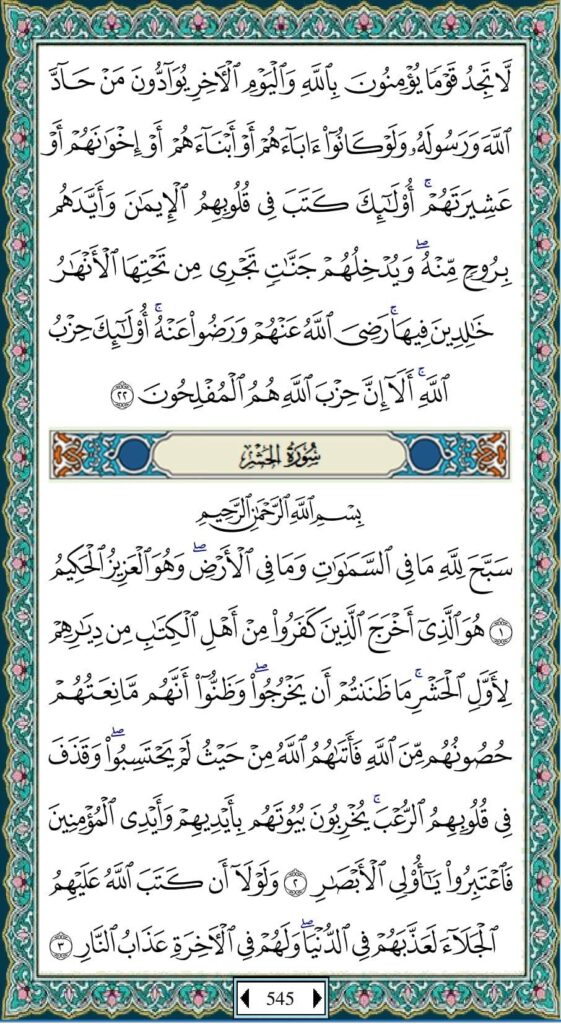 لَّا تَجِدُ قَوْمًا يُؤْمِنُونَ بِاللَّهِ وَالْيَوْمِ الْآخِرِ يُوَآدُّونَ مَنْ حَآدَّ
اللَّهَ وَرَسُولَهُۥ وَلَوْ كَانُوٓا۟ ءَابَآءَهُمْ أَوْ أَبْنَآءَهُمْ أَوْ إِخْوَٰنَهُمْ أَوْ
عَشِيرَتَهُمْ ۚ أُو۟لَـٰٓئِكَ كَتَبَ فِى قُلُوبِهِمُ الْإِيمَـٰنَ وَأَيَّدَهُم
بِرُوحٍ مِّنْهُ ۖ وَيُدْخِلُهُمْ جَنَّـٰتٍ تَجْرِى مِن تَحْتِهَا الْأَنْهَـٰرُ
خَـٰلِدِينَ فِيهَا ۚ رَضِىَ اللَّهُ عَنْهُمْ وَرَضُوا۟ عَنْهُ ۚ أُو۟لَـٰٓئِكَ حِزْبُ
اللَّهِ ۚ أَلَآ إِنَّ حِزْبَ اللَّهِ هُمُ الْمُفْلِحُونَ ٢٢
سُورَةُ الحَشْرِ
بِسْمِ اللَّهِ الرَّحْمَـٰنِ الرَّحِيمِ
سَبَّحَ لِلَّهِ مَا فِى السَّمَـٰوَٰتِ وَمَا فِى الْأَرْضِ ۖ وَهُوَ الْعَزِيزُ الْحَكِيمُ
١ هُوَ الَّذِىٓ أَخْرَجَ الَّذِينَ كَفَرُوا۟ مِنْ أَهْلِ الْكِتَـٰبِ مِن دِيَـٰرِهِمْ
لِأَوَّلِ الْحَشْرِ ۚ مَا ظَنَنتُمْ أَن يَخْرُجُوا۟ ۖ وَظَنُّوٓا۟ أَنَّهُم مَّانِعَتُهُمْ
حُصُونُهُم مِّنَ اللَّهِ فَأَتَىٰهُمُ اللَّهُ مِنْ حَيْثُ لَمْ يَحْتَسِبُوا۟ ۖ وَقَذَفَ
فِى قُلُوبِهِمُ الرُّعْبَ ۚ يُخْرِبُونَ بُيُوتَهُم بِأَيْدِيهِمْ وَأَيْدِى الْمُؤْمِنِينَ
فَاعْتَبِرُوا۟ يَـٰٓأُو۟لِى الْأَبْصَـٰرِ ٢ وَلَوْلَآ أَن كَتَبَ اللَّهُ عَلَيْهِمُ
الْجَلَآءَ لَعَذَّبَهُمْ فِى الدُّنْيَا ۖ وَلَهُمْ فِى الْآخِرَةِ عَذَابُ النَّارِ ٣
545